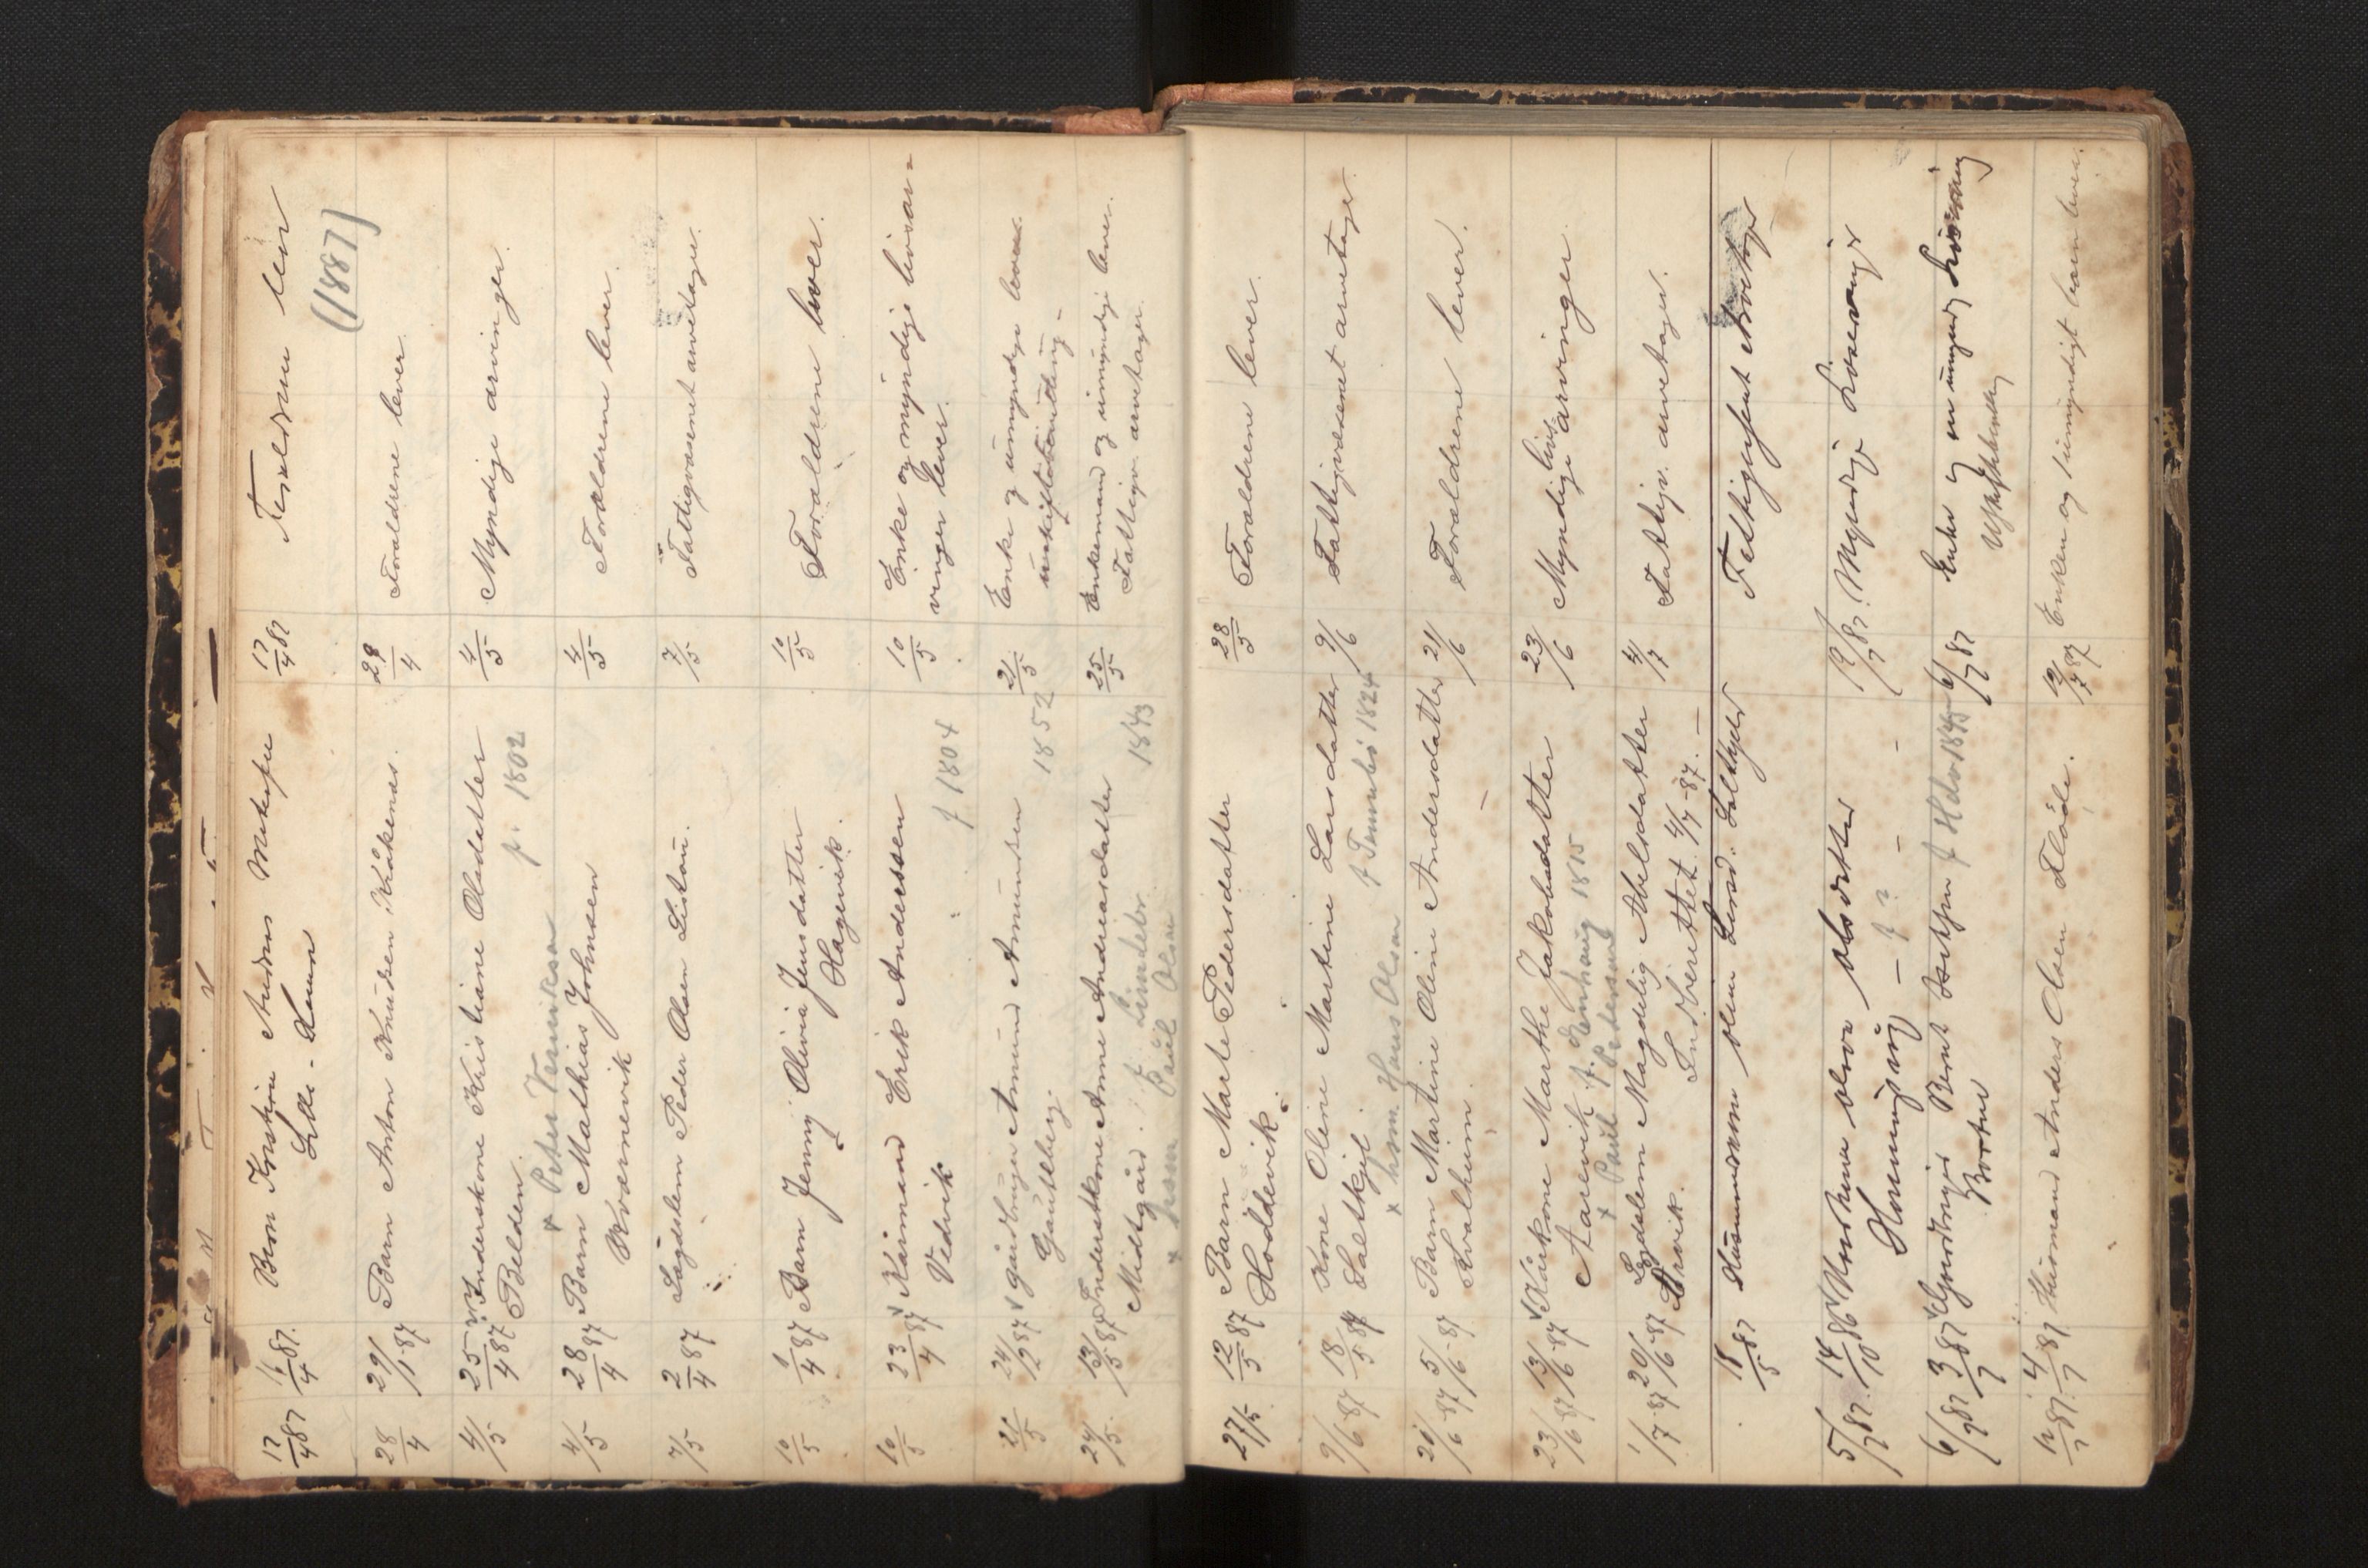 17/4 87
11/4 87.
Barn Kristine Andrea
Lille-
17/4 87
Forældrene lever
(1887)
28/4
29/1-87
Barn Anton Knudsen Kråkenes.
29/4
Forældrene lever
4/5
25/4 87
Inderskone Kristiane Olsdatter
Belden.
f. 1802
x Peter Henriksen
4/5
Myndige arvinger.
4/5
28/4 87
Barn Mathias Johnsen
Kvarnevik
4/5
Forældrene lever
7/5
2/4 87
Lægdslem Peder Olsen Listou.
7/5
Fattigvæsenet arvetager.
10/5
1/4 87
Barn Jenny Olivia Jensdatter
Hagevik.
10/5
Forældrene lever.
10/5
23/4 87
Kårmand Erik Anderssen
Vedvik
f 1804
10/5
Enke og myndige livsar=
vinger lever.
21/5
24/2 87
gårdbruger Amund Amundsen
Gausberg.
1852
21/5
Enke og umyndige lever
uskiftebevilling -
24/5.
13/5 87
Inderstkone Anne Andreasdatter
Midtgård.
1843
Paul Olsen
25/5
Enkemand og umyndige lever.
Fattigv. arvetager
27/5.
12/5 87
Barn Marte Pedersdatter
Hoddevik.
28/5
Forældrene lever.
9/6-87
18/5 87
Kone Oline Martine Larsdatter
Saltkjel
x hsm. Hans Olsen
9/6
Fattigvæsenet arvetager
21/6-87
5/6-87
Barn Martine Oline Andersdatter
Kvalheim.
21/6
Forældrene lever.
23/6-87
13/6-87
Kårkone Marthe Jakobsdatter
Aarevik
f. Denhaug 1815
x Paul Pedersen
23/6
Myndige livs
arvinger
1/7-87
20/6-87
Lægdslem Magdelig Abelsdatter
Arvik.
Indberettet 4/7-87. -
4/7
Fattigv. arvetager.
18/5 87
Husmand
5/7 87.
14/10 86
Olsdatter
Honningsvåg - f ? - -
19/7 87.
Myndige Livsarvinger
6/7 87
3/7 87
Gårdbruger Bernt
Bortne
6/7 87
Enke og en umyndig Livsarving
12/7 87.
4/7 87
Husmand Anders Olsen Flåde.
12/7 87
Enken og 1 umyndigt barn lever.